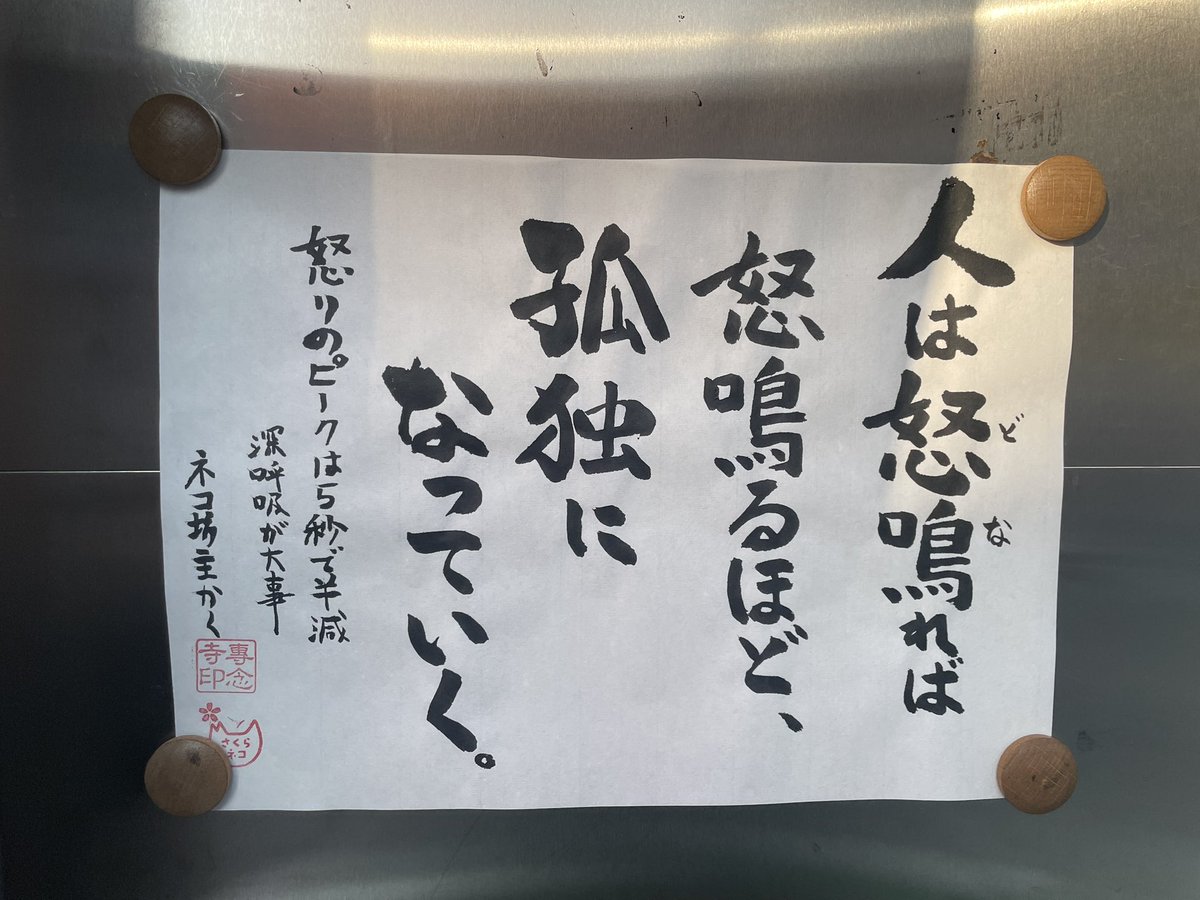 人は怒鳴れば
どな
怒鳴るほど、
孤独に
なっていく。
怒りのピークは5秒で半減
深呼吸が大事
ネコ坊主かく
専念
寺印
さくら
ネコ